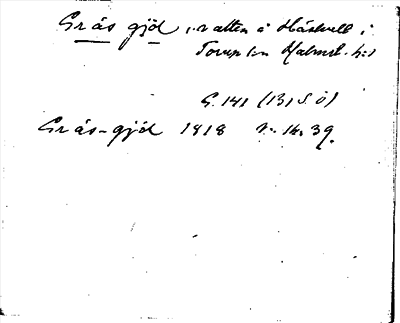 Grås gjöl, vatten å Håshult i
Torup sn Halmst. hd
G. 141 (131 S. Ö)
Grås-gjöl 1818 n. 14. 39.